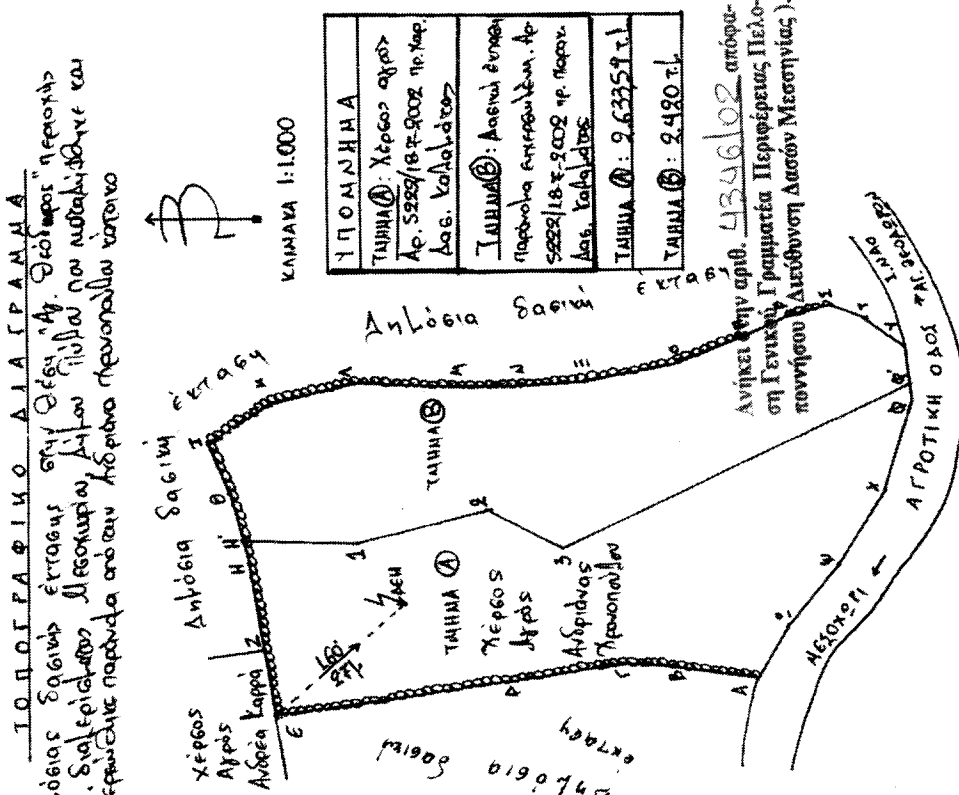 ΤΟΠΟΓΡΑΦΙΚΟ ΔΙΑΓΡΑΜΜΑ
δασικής έκτασης στην θέση "Αγ. Θεόδωρος" περιοχής
Μεσοχωρίου Δήμου Πύλου που καταλήφθηκε και
παράνομα από την Ανδριάνα Χρονοπούλου κάτοικο
Β
ΚΛΙΜΑΚΑ 1:1.000
ΥΠΟΜΝΗΜΑ
ΤΜΗΜΑ Α: Χέρσος αγρός
Αρ. 5222/18-7-2002 πρ. Χαρ.
Δασ. Καλαμάτας
ΤΜΗΜΑ Β: Δασική έκταση
παράνομα εκχερσωμένη. Αρ.
5222/18-7-2002 πρ.
Δασ. Καλαμάτας
ΤΜΗΜΑ Α: 2,633,59 τ.μ.
ΤΜΗΜΑ Β: 2.420 τ.μ.
Ανήκει στην αριθ. 4346/02 απόφα-
ση Γενικού Γραμματέα Περιφέρειας Πελο-
ποννήσου (Διεύθυνση Δασών Μεσσηνίας).
Δημόσια δασική έκταση
Δημόσια δασική έκταση
Χέρσος
Αγρός
Ανδρέα Καρρά
δασική
έκταση
ΤΜΗΜΑ Α
Χέρσος
Αγρός
Ανδριάνας
Χρονοπούλου
ΤΜΗΜΑ Β
ΔΕΗ
Ε Ζ Η Η' Θ Ι Κ Λ Μ Ν Ξ Ο
Α Β Γ Δ
1
2
3
Χ Ψ
ΜΕΣΟΧΩΡΙ
ΑΓΡΟΤΙΚΗ ΟΔΟΣ
Ι. ΝΑΟ